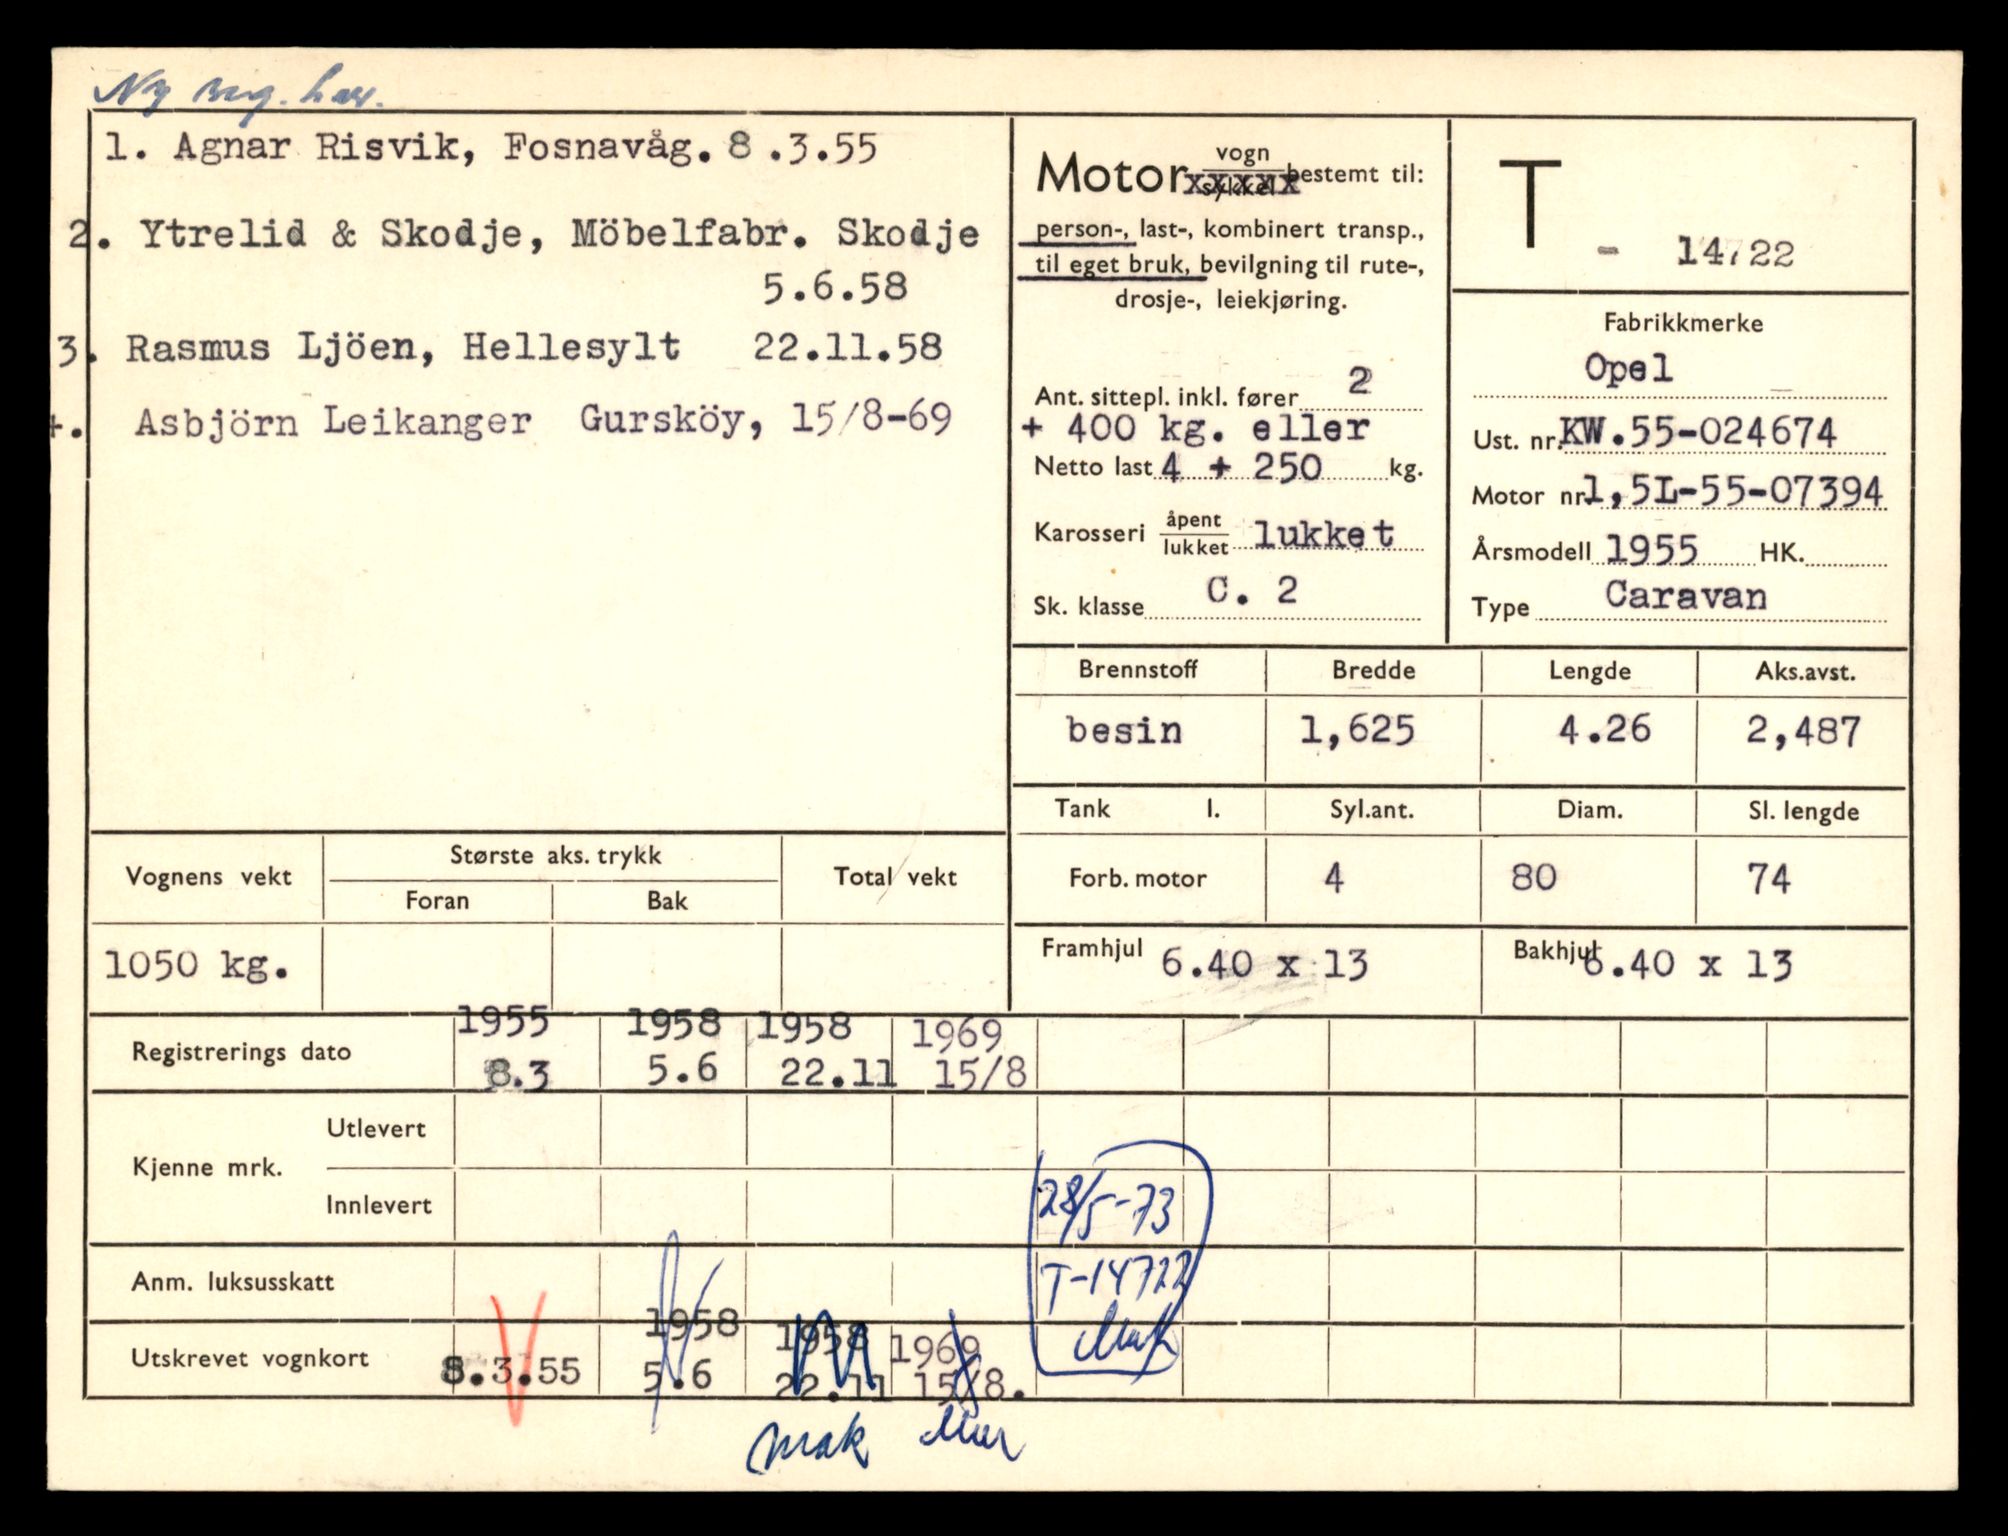 Ny
1. Agnar Risvik, Fosnavåg. 8 .3.55
2. Ytrelid & Skodje, Möbelfabr. Skodje
5.6.58
3. Rasmus Ljöen, Hellesylt 22.11.58
4. Asbjörn Leikanger Gursköy, 15/8-69
Motor vogn sykkel bestemt til:
person-, last-, kombinert transp.,
til eget bruk, bevilgning til rute-,
drosje-, leiekjøring.
Ant. sittepl. inkl. fører 2
+ 400 kg. eller
Netto last 4 + 250 kg.
Karosseri åpent lukket lukket
Sk. klasse C. 2
T - 14722
Fabrikkmerke
Opel
Ust. nr. KW.55-024674
Motor nr. 1,5L-55-07394
Årsmodell 1955 HK.
Type Caravan
Brennstoff Bredde Lengde Aks.avst.
besin 1,625 4.26 2,487
Tank l. Syl.ant. Diam. Sl. lengde
Forb. motor 4 80 74
Framhjul 6.40 x 13 Bakhjul 6.40 x 13
Vognens vekt Største aks. trykk Total vekt
Foran Bak
1050 kg.
1955 1958 1958 1969
Registrerings dato 8.3 5.6 22.11 15/8
Kjenne mrk. Utlevert
Innlevert 28/5-73
Anm. luksusskatt T-14722
1958 1958 1969
Utskrevet vognkort 8.3.55 5.6 22.11 15/8.